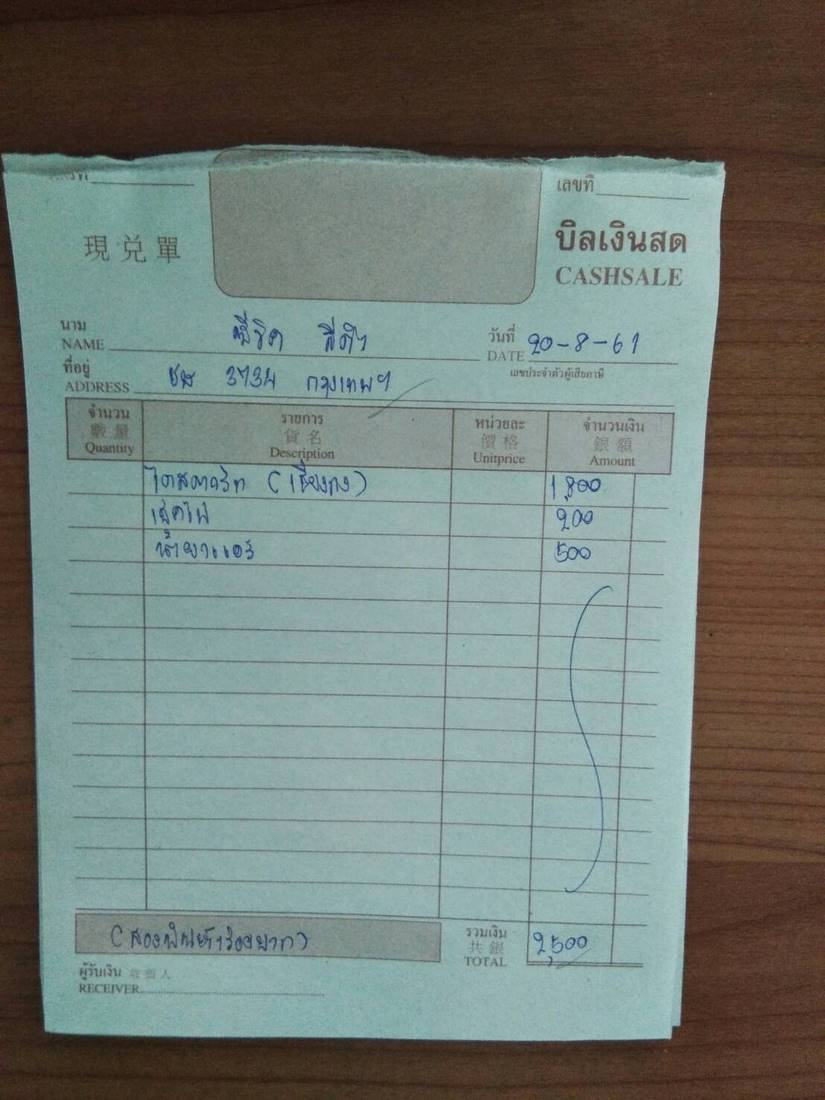 เลขที่
現兑單
บิลเงินสด
CASHSALE
นาม
NAME
วันที่
DATE 20-8-61
ที่อยู่
ADDRESS 3734 กรุงเทพฯ
เลขประจำตัวผู้เสียภาษี
จำนวน รายการ หน่วยละ จำนวนเงิน
數量 貨名 價格 銀額
Quantity Description Unitprice Amount
ไดสตาร์ท (เชียงกง) 1,800
เช็คไฟ 200
น้ำยาแอร์ 500
(สองพันห้าร้อยบาท) รวมเงิน 2,500
共銀
TOTAL
ผู้รับเงิน
RECEIVER